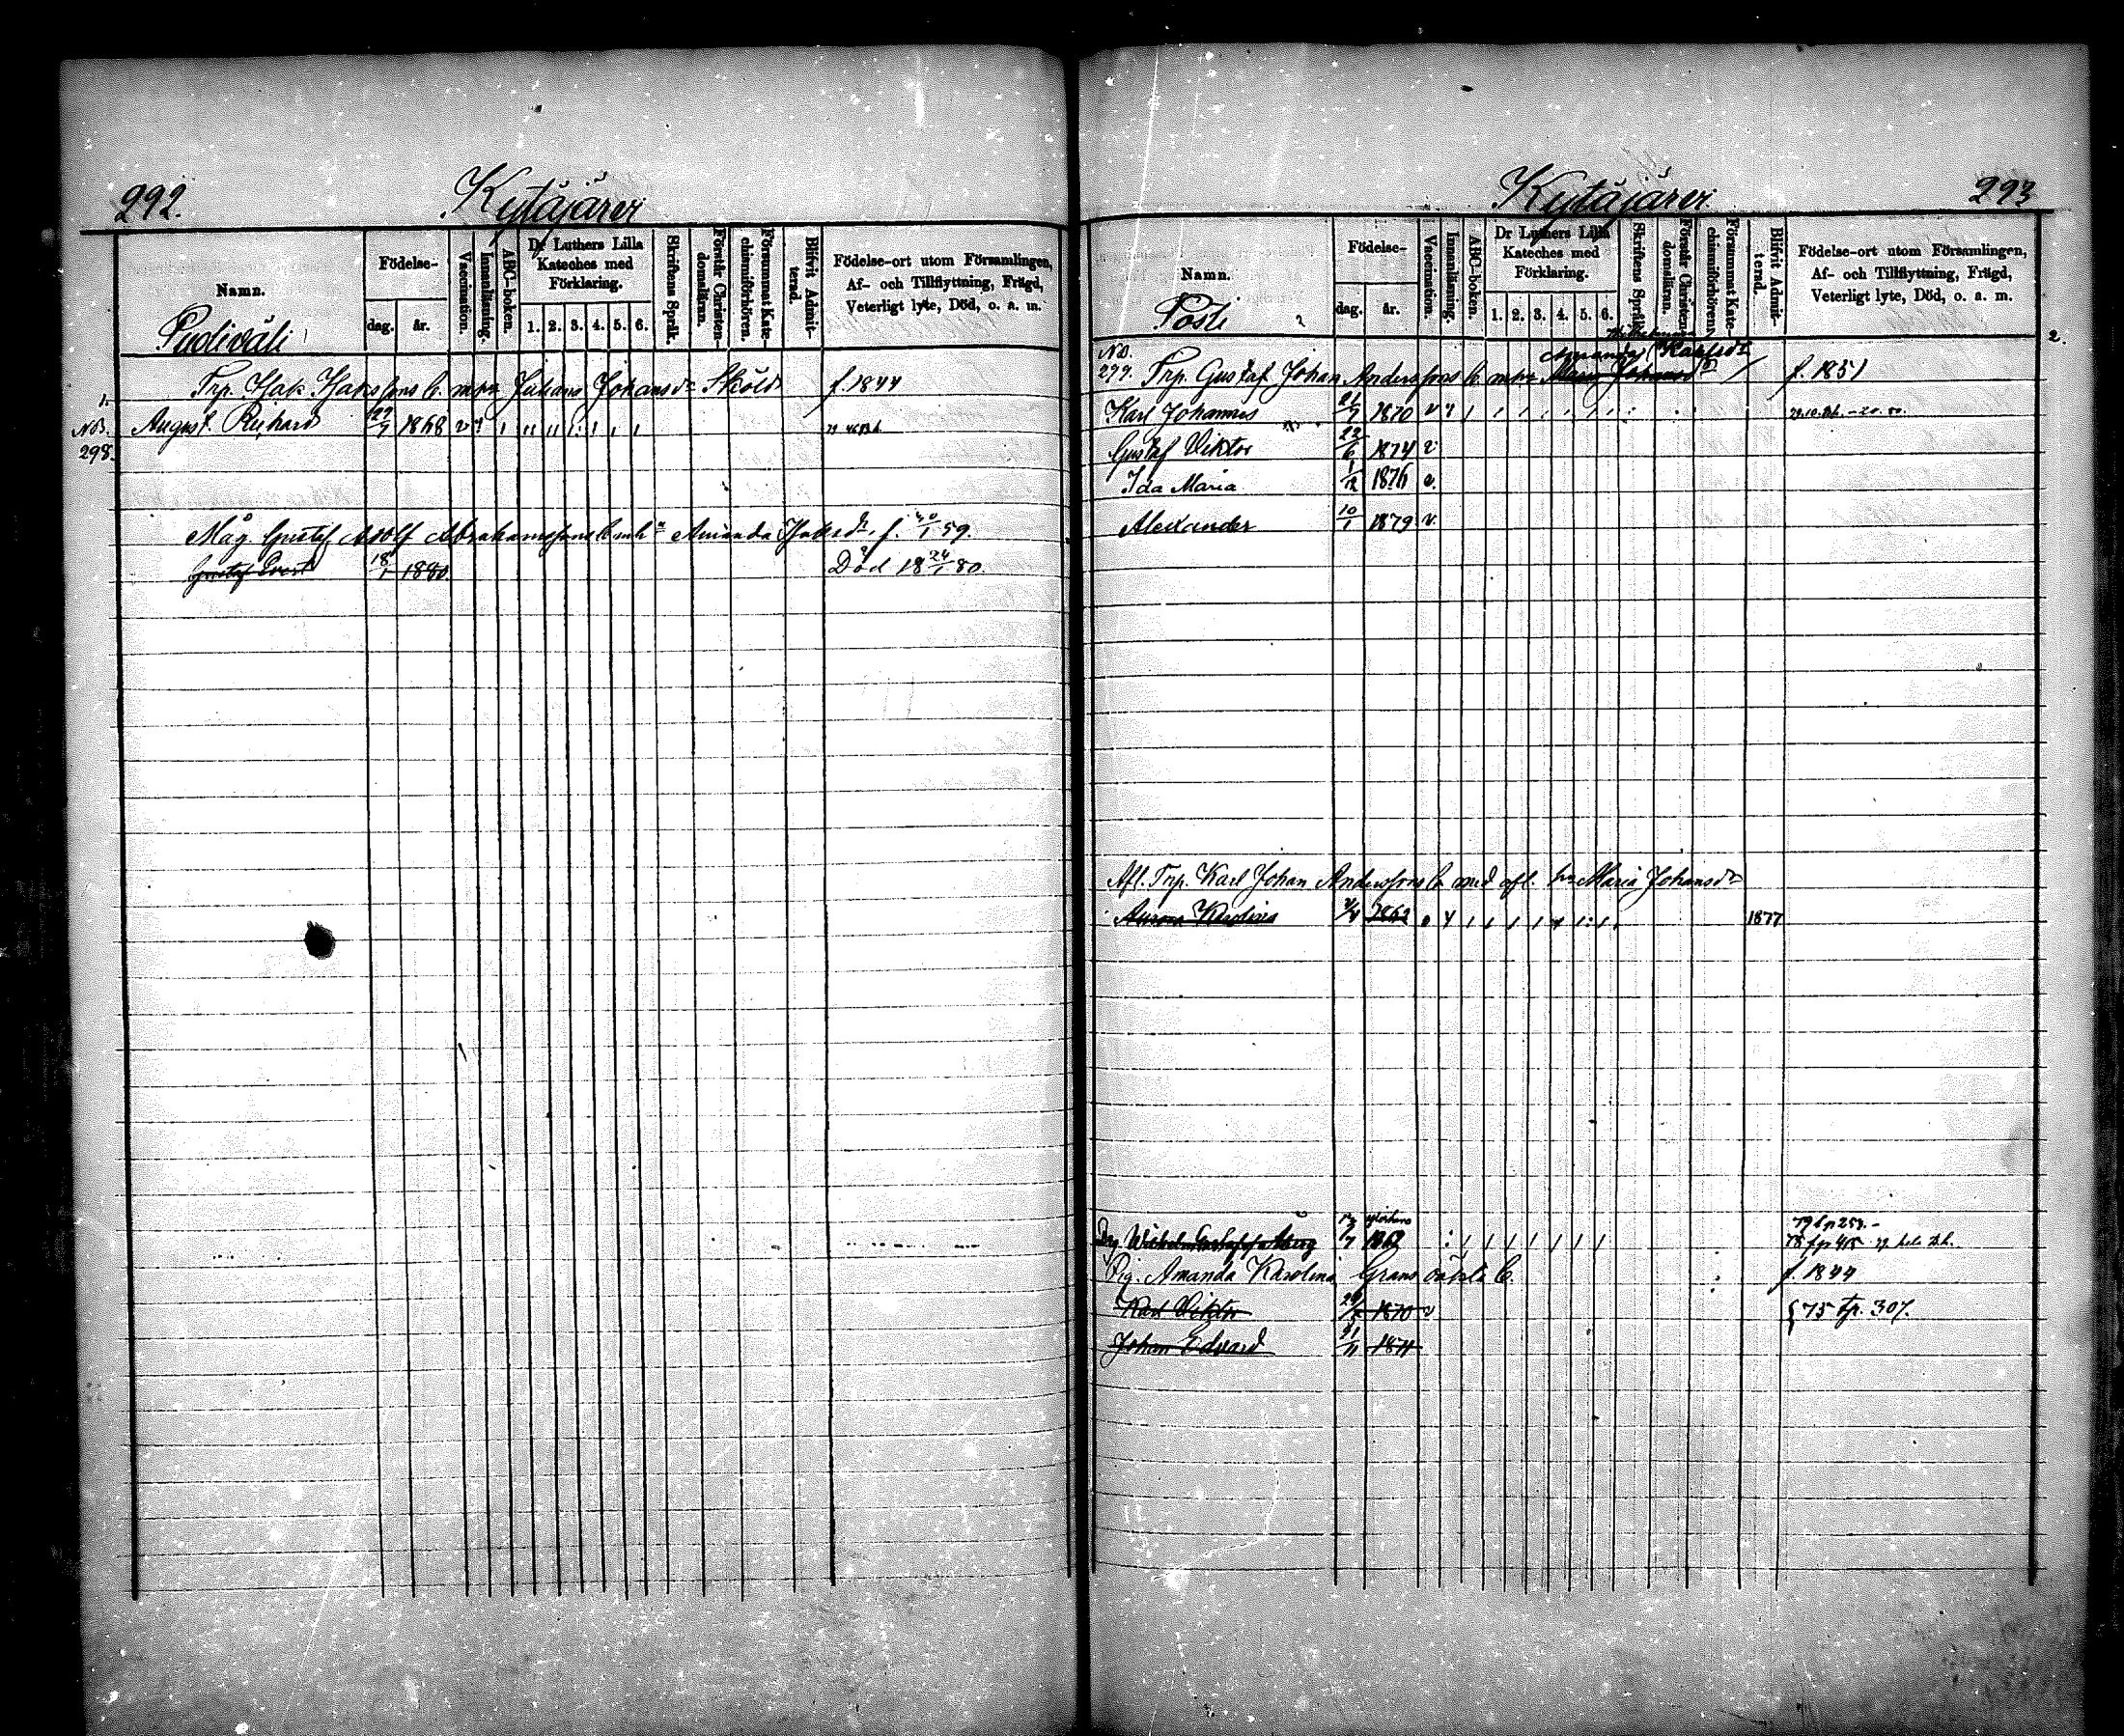 292.
Kytäjärvi
Namn.
Födelse-
dag.
år.
Vaccination.
Innanläsning.
ABC-boken.
Dr Luthers Lilla
Kateches med
Förklaring.
1. 2. 3. 4. 5. 6.
Skriftens Språk.
Förstår Christen-
domsläran.
Försummat Kate-
chismiförhören.
Blifvit Admit-
terad.
Födelse-ort utom Församlingen,
Af- och Tillflyttning, Frägd,
Veterligt lyte, Död, o. a. m.
Trp. Isak Isakssons b. m. hu Juliana Johansdr Sköld f. 1844
1.
August Richard 22/7 1868 v
NB.
298.
Måg Gustaf Adolf Abrahamssons b. m. h. Amanda Isaksdr. f. 59.
Gustaf 18/1 1880. Död 18 24/1 80.
293
Kytäjärvi
Namn.
Posti
Födelse-
dag.
år.
Vaccination.
Innanläsning.
ABC-boken.
Dr Luthers Lilla
Kateches med
Förklaring.
1. 2. 3. 4. 5. 6.
Skriftens Språk.
Förstår Christen-
domsläran.
Försummat Kate-
chismiförhören.
Blifvit Admit-
terad.
Födelse-ort utom Församlingen,
Af- och Tillflyttning, Frägd,
Veterligt lyte, Död, o. a. m.
2.
Amanda Karlsdr
NB.
299. Trp. Gustaf Johan Anderssons b. m. hu Maria Johansdr f. 1851
Karl Johannes 21/7 1870 v
Gustaf Viktor 22/6 1874 v
Ida Maria 1/12 1876 v.
Alexander 10/1 1879 v.
Afl. Trp. Karl Johan Anderssons b. med afl. hu Maria Johansdr
Aurora Karolina 1862 1877
79 t p 253.-
Drg. Wilhelm 1862
Pig. Amanda Karolina b. f. 1844
Karl Viktor 1870 v {75 t p. 307.
Johan Edvard 1871